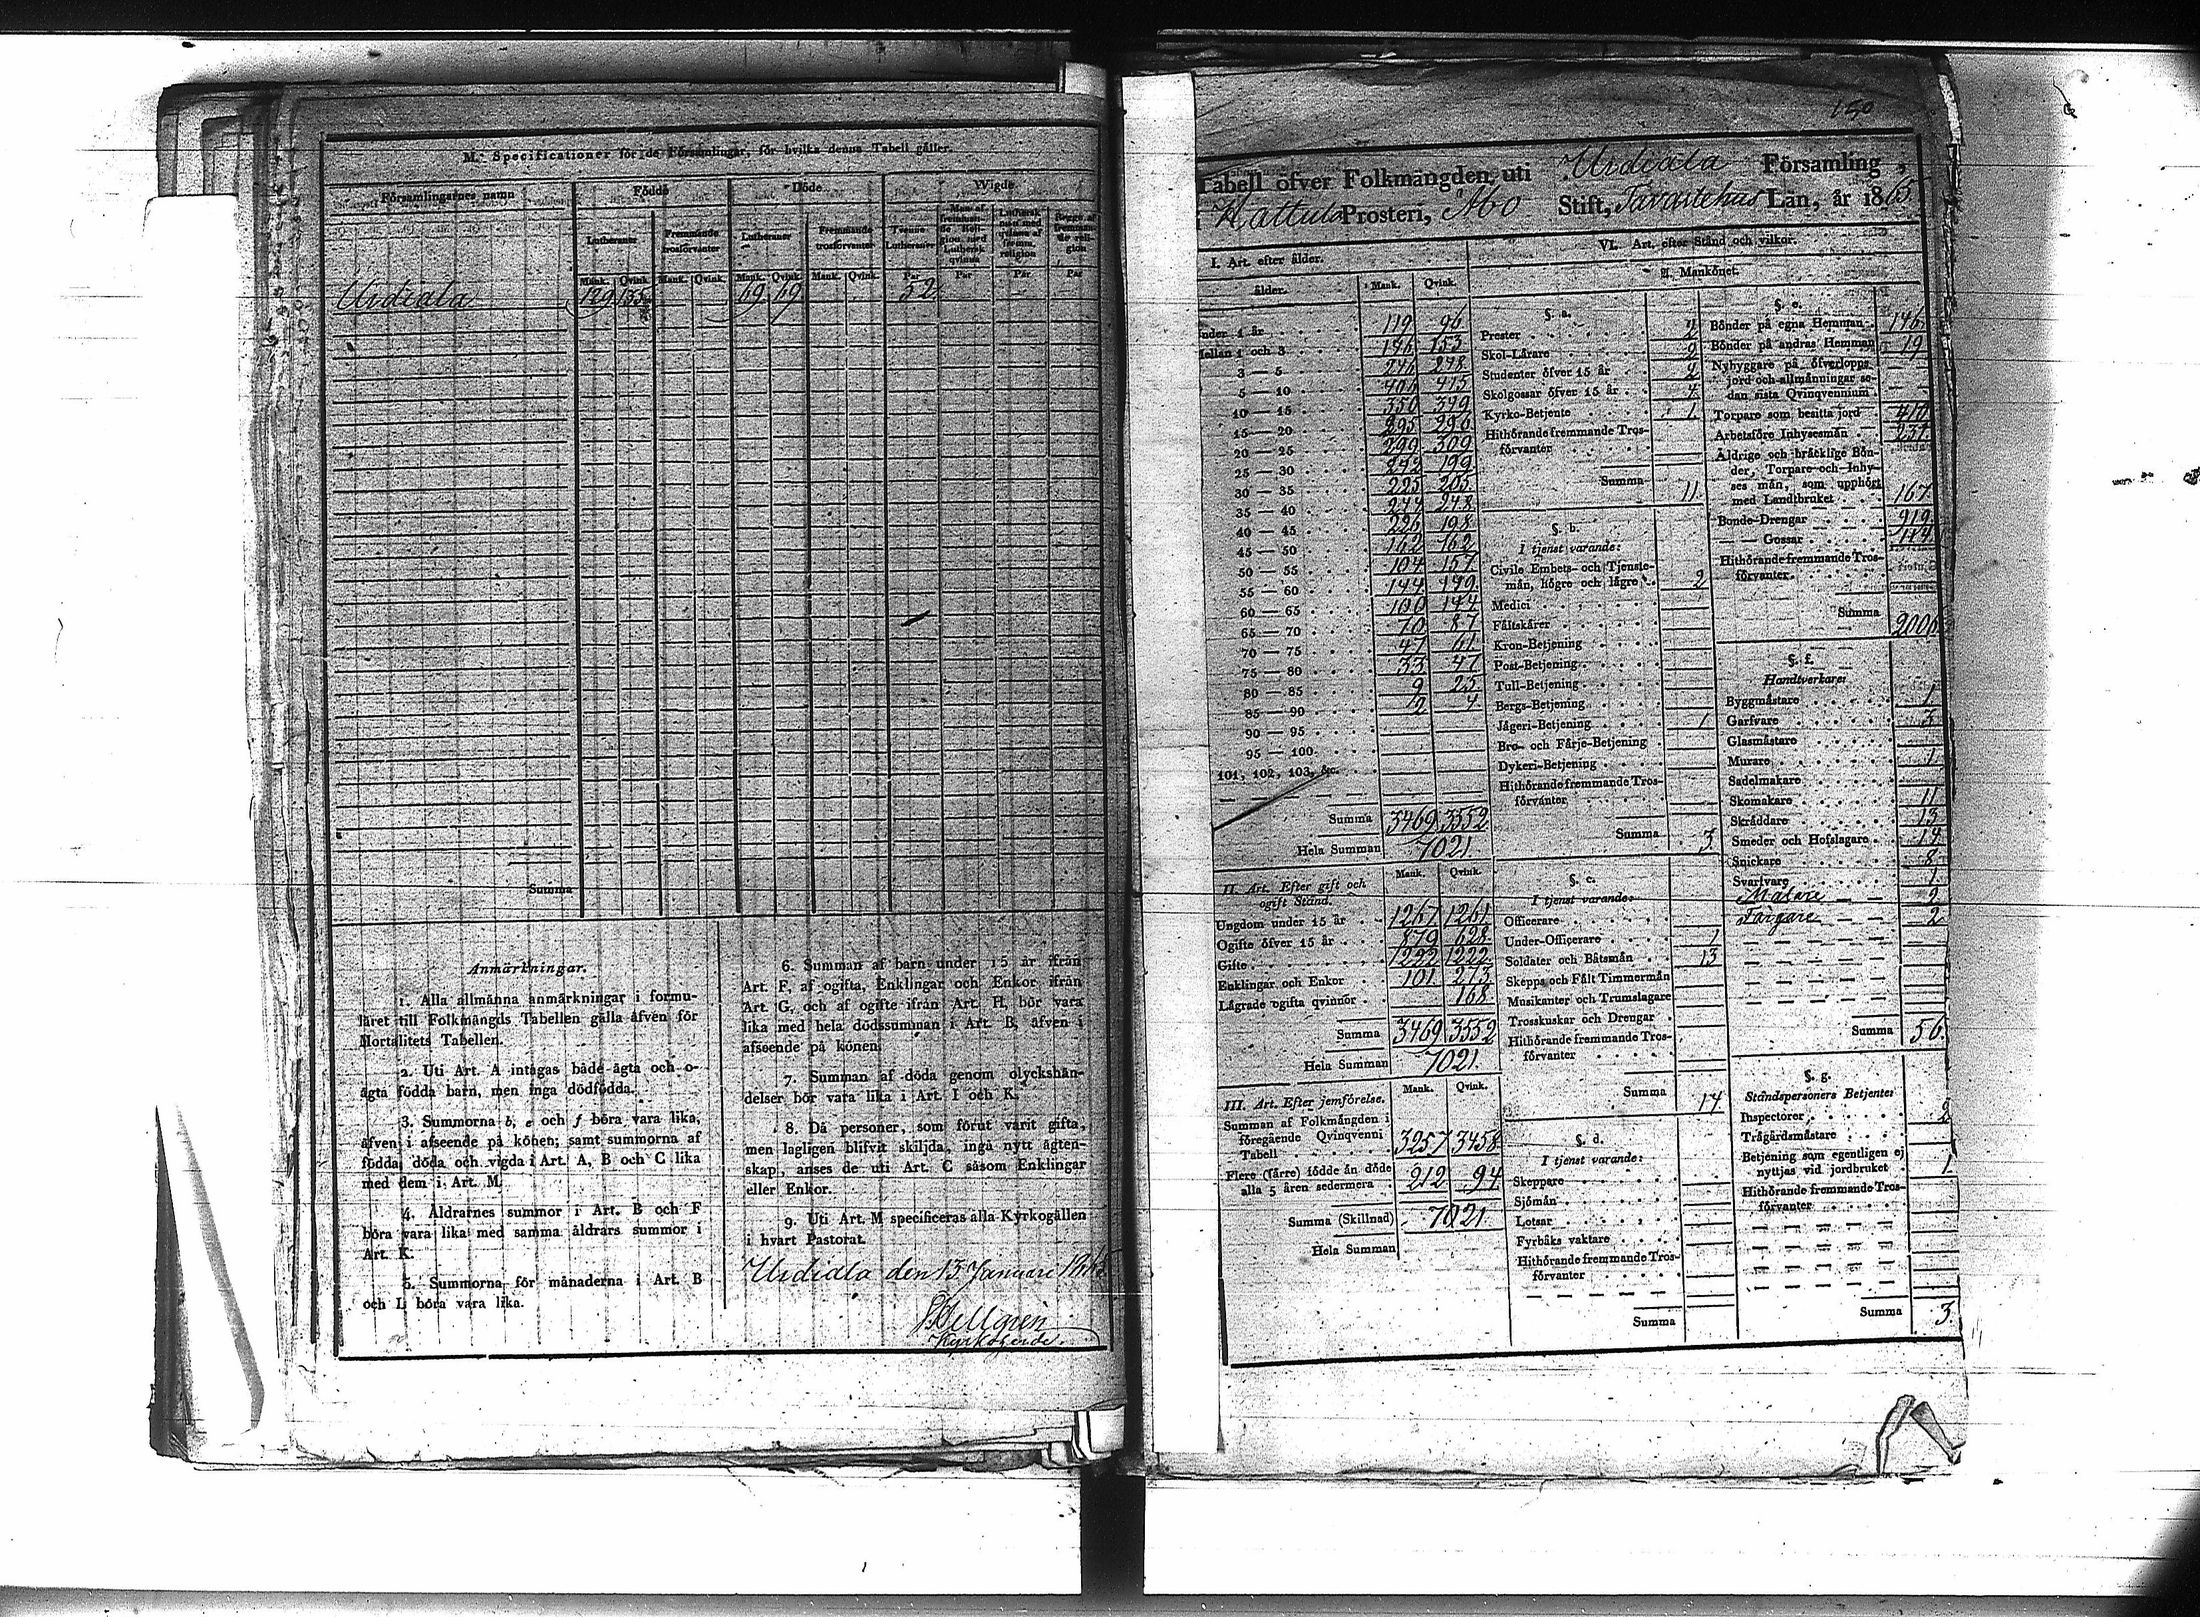 M. Specificationer för de Församlingar, för hvilka denna Tabell gäller.
Församlingarnes namn
Födde
Döde
Wigde
Lutheraner
Fremmande trosförvanter
Lutheraner
Fremmande trosförvanter
Tvenne Lutheraner
Mank. Qvink. Mank. Qvink. Mank. Qvink. Mank. Qvink. Par Par Par Par
Urdiala 129 69 69 52
Summa
Anmärkningar.
1. Alla allmänna anmärkningar i formu-
läret till Folkmängds Tabellen gälla äfven för
Mortalitets Tabellen.
2. Uti Art. A intagas både ägta och o-
ägta födda barn, men inga dödfödda.
3. Summorna b, e och f böra vara lika,
äfven i afseende på könen; samt summorna af
födda, döda och vigda i Art. A, B och C lika
med dem i Art. M.
4. Åldrarnes summor i Art. B och F
böra vara lika med samma åldrars summor i
Art. K.
5. Summorna för månaderna i Art. B
och L böra vara lika.
6. Summan af barn under 15 år ifrån
Art. F, af ogifta, Enklingar och Enkor ifrån
Art. G, och af ogifte ifrån Art. H, bör vara
lika med hela dödssumman i Art. B, äfven i
afseende på könen.
7. Summan af döda genom olyckshän-
delser bör vara lika i Art. I och K.
8. Då personer, som förut varit gifta,
men lagligen blifvit skiljda, ingå nytt ägten-
skap, anses de uti Art. C såsom Enklingar
eller Enkor.
9. Uti Art. M specificeras alla Kyrkogällen
i hvart Pastorat.
Urdiala den 13 Januari
Hellgren
Kyrkoherde.
150
Tabell öfver Folkmängden uti Urdiala Församling,
Hattula Prosteri, Åbo Stift, Tavastehus Län, år 1865.
I. Art. efter ålder.
ålder. Mank. Qvink.
nder 1 år 119 96
ellan 1 och 3 153
3 — 5 246 248
5 — 10 406 415
10 — 15 350 349
15 — 20 295 296
20 — 25 299 309
25 — 30 199
30 — 35 225 205
35 — 40 244 248
40 — 45 226 198
45 — 50 162 162
50 — 55 104 157
55 — 60 144
60 — 65 100 144
65 — 70 70 87
70 — 75 47 61
75 — 80 33 47
80 — 85 9 25
85 — 90 2 4
90 — 95
95 — 100
101, 102, 103, &c.
Summa 3469 3552
Hela Summan 7021
II. Art. Efter gift och
ogift Stånd. Mank. Qvink.
Ungdom under 15 år 1267 1261
Ogifte öfver 15 år 879 628
Gifte 1222 1222
Enklingar och Enkor 101 273
Lägrade ogifta qvinnor 168
Summa 3469 3552
Hela Summan 7021
III. Art. Efter jemförelse. Mank. Qvink.
Summan af Folkmängden i
föregående Qvinqvenni
Tabell 3257 3458
Flere (färre) födde än döde
alla 5 åren sedermera 212 94
Summa (Skillnad) 7021
Hela Summan
VI. Art. efter Stånd och vilkor.
A. Mankönet.
§. a.
Prester 2
Skol-Lärare 2
Studenter öfver 15 år 2
Skolgossar öfver 15 år 4
Kyrko-Betjente 1
Hithörande fremmande Tros-
förvanter
Summa 11
§. b.
I tjenst varande:
Civile Embets- och Tjenste-
män, högre och lägre 2
Medici
Fältskärer
Kron-Betjening
Post-Betjening
Tull-Betjening
Bergs-Betjening
Jägeri-Betjening 1
Bro- och Färje-Betjening
Dykeri-Betjening
Hithörande fremmande Tros-
förvanter
Summa 3
§. c.
I tjenst varande:
Officerare
Under-Officerare 1
Soldater och Båtsmän 13
Skepps och Fält Timmermän
Musikanter och Trumslagare
Trosskuskar och Drengar
Hithörande fremmande Tros-
förvanter
Summa 14
§. d.
I tjenst varande:
Skeppare
Sjömän
Lotsar
Fyrbåks vaktare
Hithörande fremmande Tros-
förvanter
Summa
§. e.
Bönder på egna Hemman 146
Bönder på andras Hemman 19
Nybyggare på öfverlopps
jord och allmänningar se-
dan sista Qvinqvennium
Torpare som besitta jord 410
Arbetsföre Inhysesmän 237
Åldrige och bräcklige Bön-
der, Torpare och Inhy-
ses män, som upphört
med Landtbruket 167
Bonde-Drengar
— — Gossar
Hithörande fremmande Tros-
förvanter
Summa 2006
§. f.
Handtverkare:
Byggmästare 1
Garfvare 3
Glasmästare
Murare 1
Sadelmakare
Skomakare 11
Skräddare 13
Smeder och Hofslagare 14
Snickare 8
Svarfvare 1
Målare 2
Färgare 2
Summa 56
§. g.
Ståndspersoners Betjente:
Inspectorer 2
Trägårdsmästare
Betjening som egentligen ej
nyttjas vid jordbruket 1
Hithörande fremmande Tros-
förvanter
Summa 3